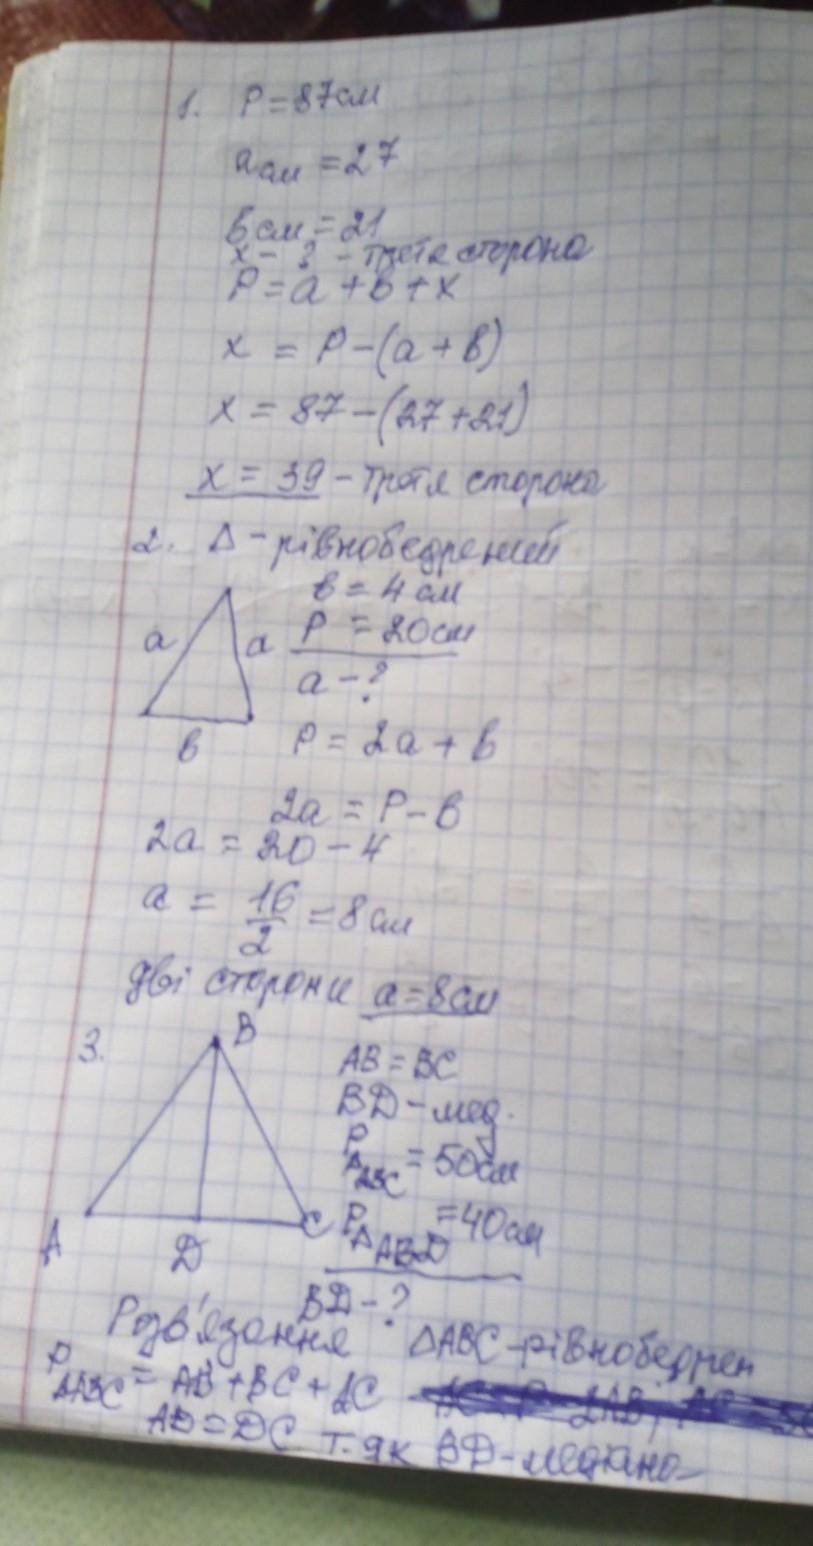 1. P = 87см
a см = 27
в см = 21
x - ? - третя сторона
P = a + в + x
x = P - (a + в)
x = 87 - (27 + 21)
x = 39 - третя сторона
2. Δ - рівнобедрений
в = 4 см
a a P = 20см
a - ?
в P = 2a + в
2a = P - в
2a = 20 - 4
a = 16/2 = 8 см
Дві сторони a = 8см
3. B AB = BC
BD - мед.
P ΔABC = 50см
A D C P ΔABD = 40см
BD - ?
Розв'язання ΔABC - рівнобедрен
P ΔABC = AB + BC + AC
AD = DC т. як BD - медіана